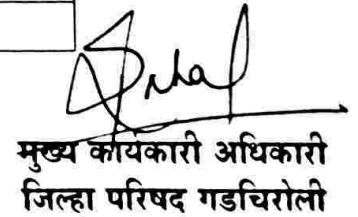 मुख्य कार्यकारी अधिकारी
जिल्हा परिषद गडचिरोली